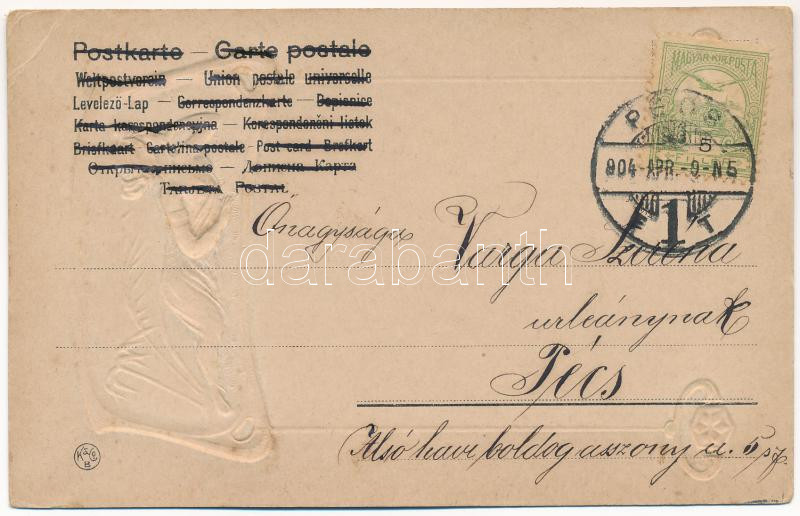 Postkarte — Carte postale
Weltpostverein — Union postale universelle
Levelező-Lap — Correspondenzkarte — Dopisnice
Karta korespondencyjna — Korespondenční lístek
Briefkaart — Cartolina postale — Post card — Brefkort
Открытое письмо — Дописна Карта
MAGYAR KIR. POSTA
PÉCS
904-APR.-9-N5
1
Őnagysága Varga Izolina
urleánynak
Pécs
Alsó havi boldog asszony u. 5 sz.
darabanth